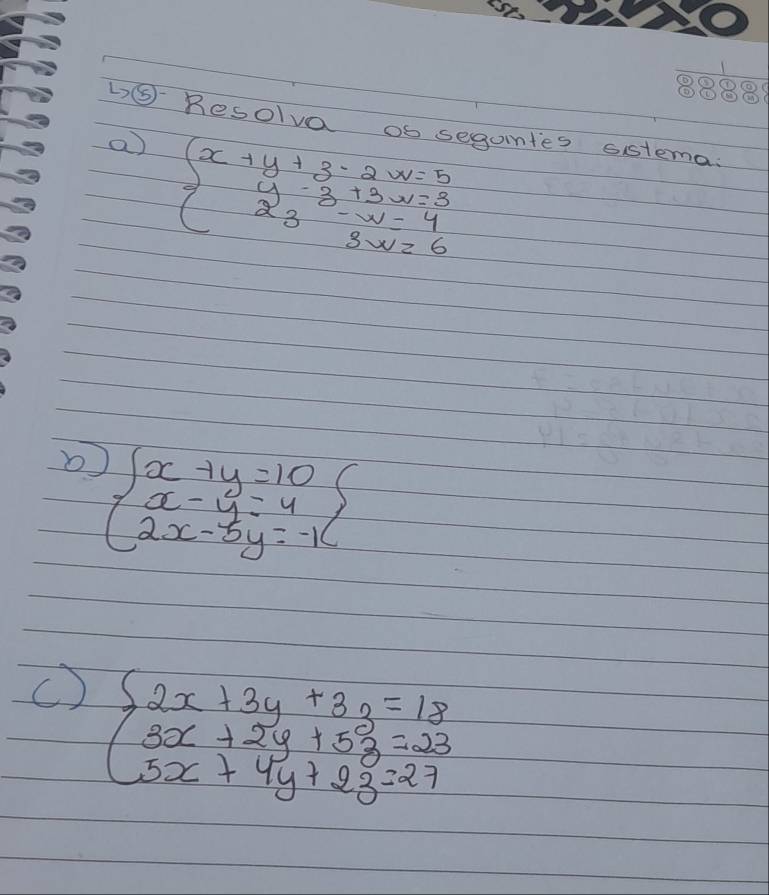 L>⑤- Resolva os seguintes sistema:
a) { x + y + z - 2w = 5
y - z + 3w = 3
2z - w = 4
3w = 6
b) { x + y = 10
x - y = 4
2x - 5y = -1
c) { 2x + 3y + 3z = 18
3x + 2y + 5z = 23
5x + 4y + 2z = 27